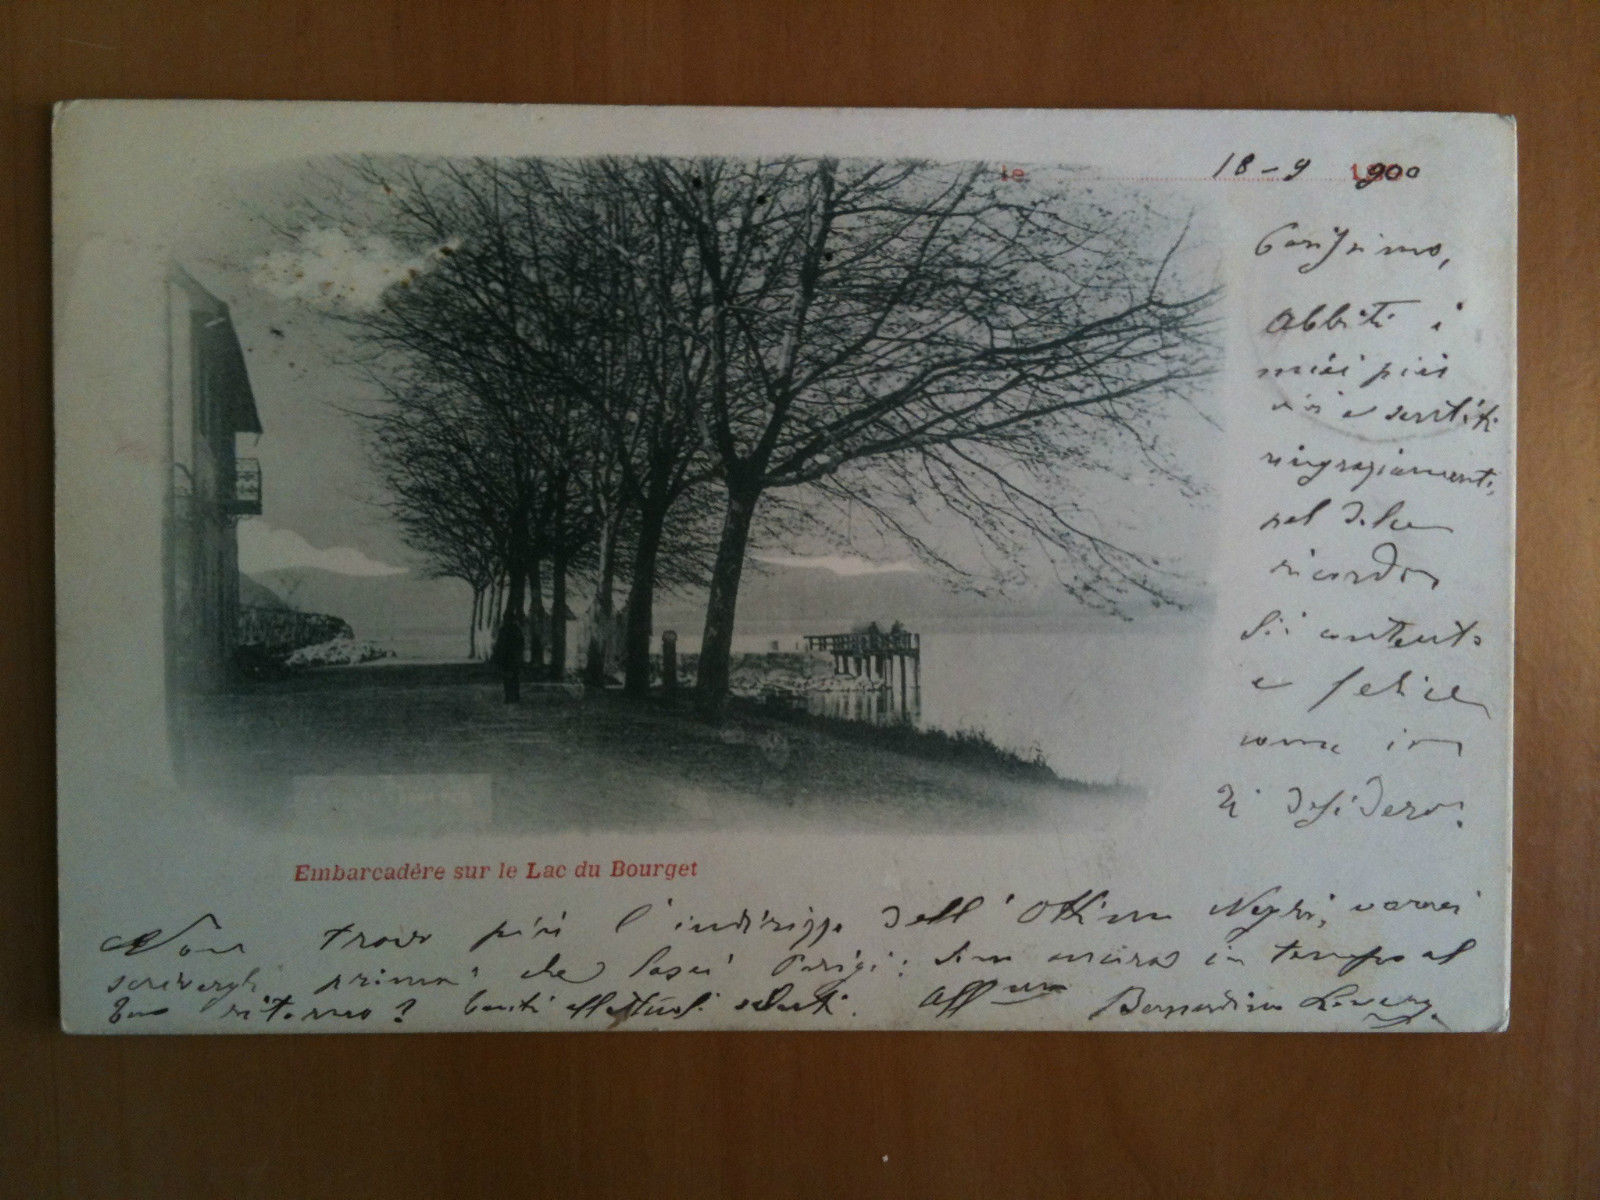 le 18-9 1900
Carissimo,
Abbiti i
miei più
vivi e sentiti
ringraziamenti,
pel
ricordo
Sii contento
e felice
come io
ti desidero.
Embarcadère sur le Lac du Bourget
Non trovo più l'indirizzo dell'Ottimo vorrei
scrivergli prima che lasci Parigi: Sono ancora in tempo al
tuo ritorno? Cariti affettuosi saluti. Aff.mo Bernardino